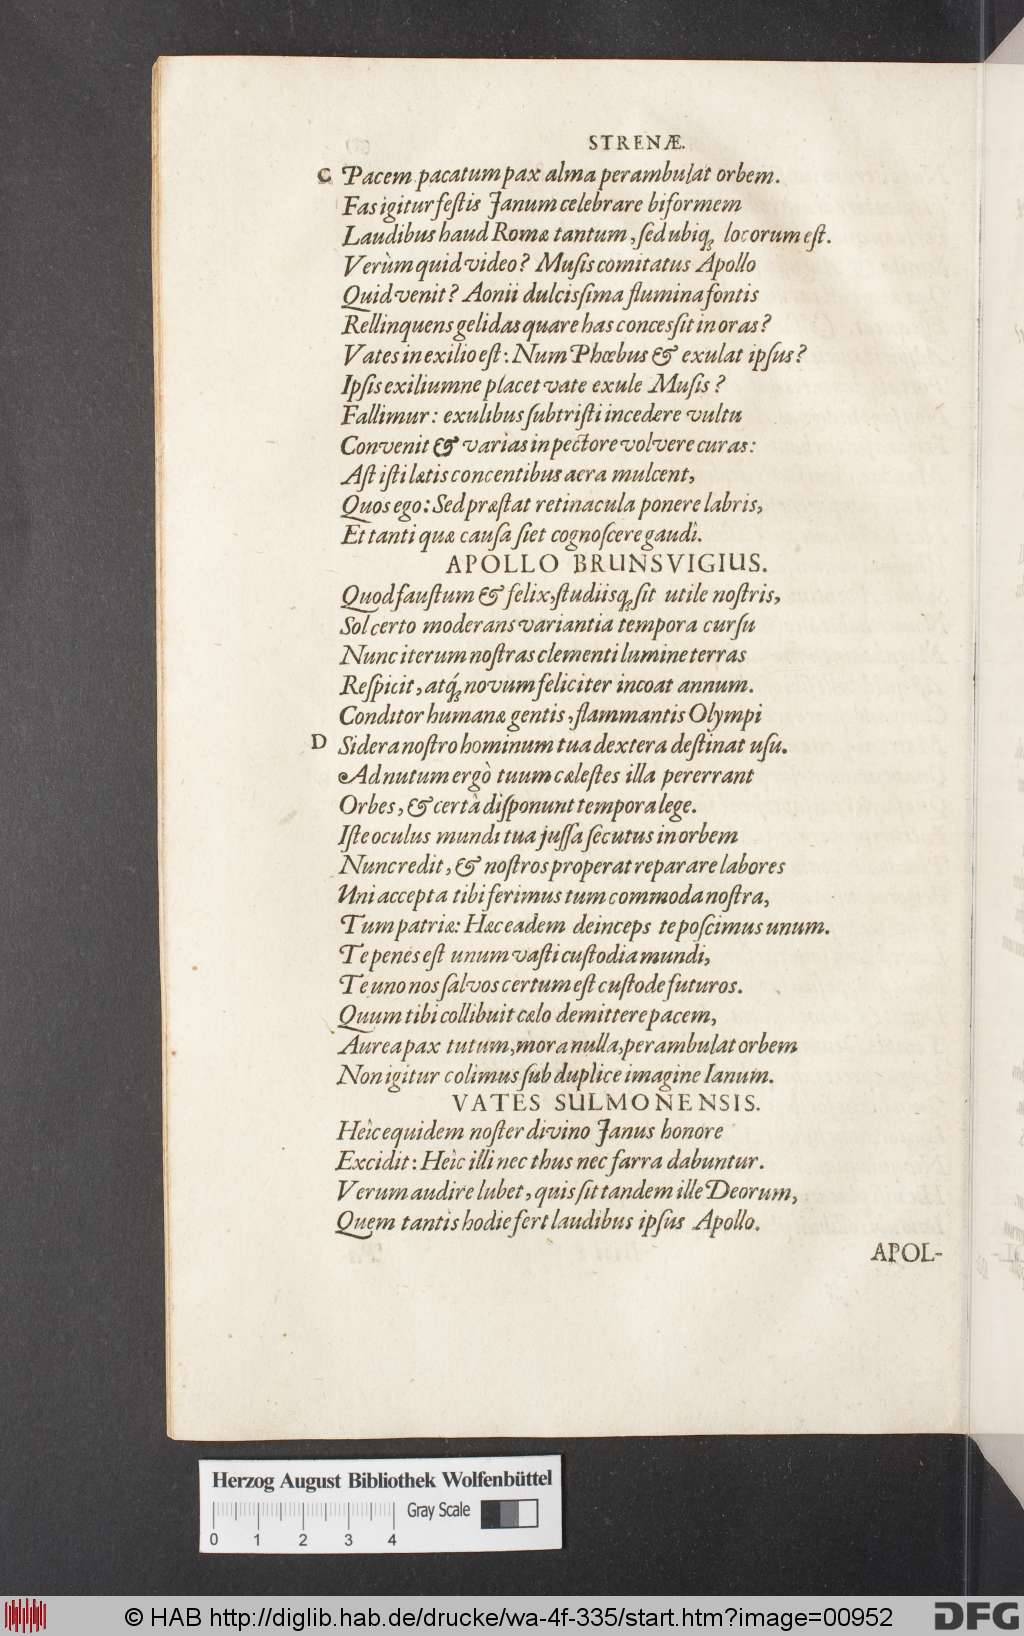 STRENÆ.
C Pacem pacatum pax alma perambulat orbem.
Fas igitur festis Janum celebrare biformem
Laudibus haud Romæ tantum, sed ubiq; locorum est.
Verùm quid video? Musis comitatus Apollo
Quid venit? Aonii dulcissima flumina fontis
Rellinquens gelidas quare has concessit in oras?
Vates in exilio est: Num Phœbus & exulat ipsus?
Ipsis exiliumne placet vate exule Musis?
Fallimur: exulibus subtristi incedere vultu
Convenit & varias in pectore volvere curas:
Ast isti lætis concentibus aera mulcent,
Quos ego: Sed præstat retinacula ponere labris,
Et tanti quæ causa siet cognoscere gaudî.
APOLLO BRUNSVIGIUS.
Quod faustum & felix, studiisq; sit utile nostris,
Sol certo moderans variantia tempora cursu
Nunc iterum nostras clementi lumine terras
Respicit, atq́; novum feliciter incoat annum.
Conditor humanæ gentis, flammantis Olympi
D Sidera nostro hominum tua dextera destinat usu.
Ad nutum ergò tuum cælestes illa pererrant
Orbes, & certâ disponunt tempora lege.
Iste oculus mundi tua jussa secutus in orbem
Nunc redit, & nostros properat reparare labores
Uni accepta tibi ferimus tum commoda nostra,
Tum patriæ: Hæc eadem deinceps te poscimus unum.
Te penes est unum vasti custodia mundi,
Te uno nos salvos certum est custode futuros.
Quum tibi collibuit cælo demittere pacem,
Aurea pax tutum, mora nulla, perambulat orbem
Non igitur colimus sub duplice imagine Ianum.
VATES SULMONENSIS.
Heìc equidem noster divino Janus honore
Excidit: Heìc illi nec thus nec farra dabuntur.
Verum audire lubet, quis sit tandem ille Deorum,
Quem tantis hodie fert laudibus ipsus Apollo.
APOL-
Herzog August Bibliothek Wolfenbüttel
Gray Scale
0 1 2 3 4
© HAB http://diglib.hab.de/drucke/wa-4f-335/start.htm?image=00952
DFG